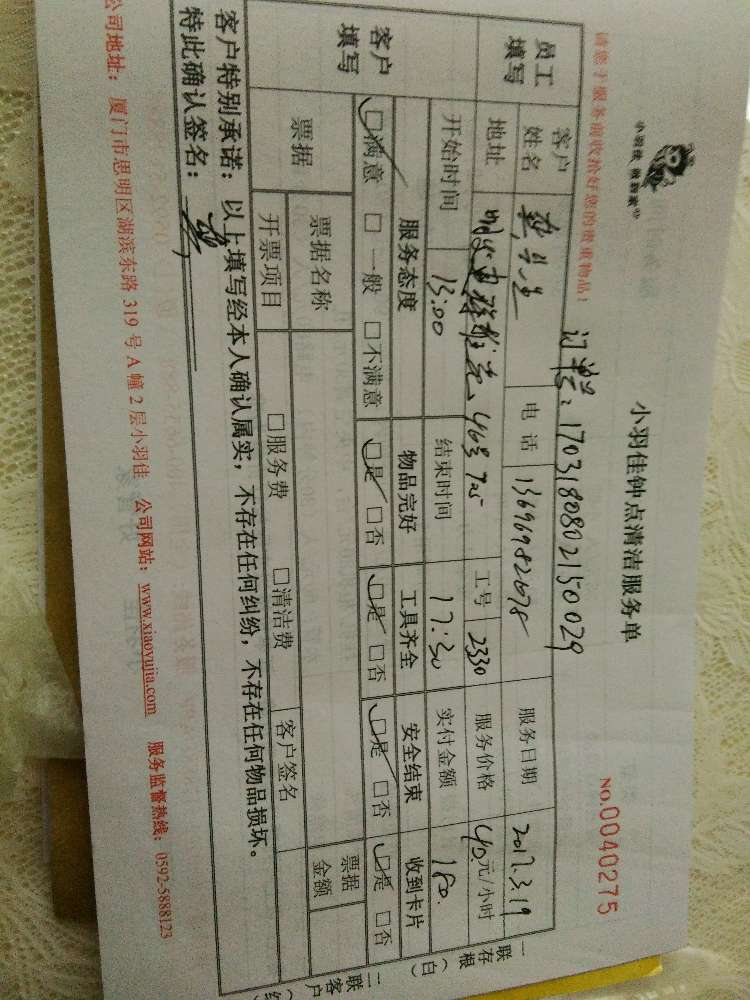 小羽佳 做到家
小羽佳钟点清洁服务单
请您于服务前收拾好您的贵重物品!
订单号: 1703180802150029
NO.0040275
员工填写
客户姓名
先生
电话
13696982678
服务日期
2017.3.19
地址
雅苑 468号 725
工号
2330
服务价格
40元/小时
开始时间
13:00
结束时间
17:30
实付金额
180.
客户填写
服务态度
物品完好
工具齐全
安全结束
收到卡片
☑满意 □一般 □不满意
☑是 □否
☑是 □否
☑是 □否
☑是 □否
票据
票据名称
票据金额
开票项目
□服务费 □清洁费
客户签名
客户特别承诺:以上填写经本人确认属实,不存在任何纠纷,不存在任何物品损坏。
特此确认签名:
公司地址:厦门市思明区湖滨东路 319 号 A 幢 2 层小羽佳 公司网站:www.xiaoyujia.com 服务监督热线:0592-5888123
一联存根(白)
二联客户